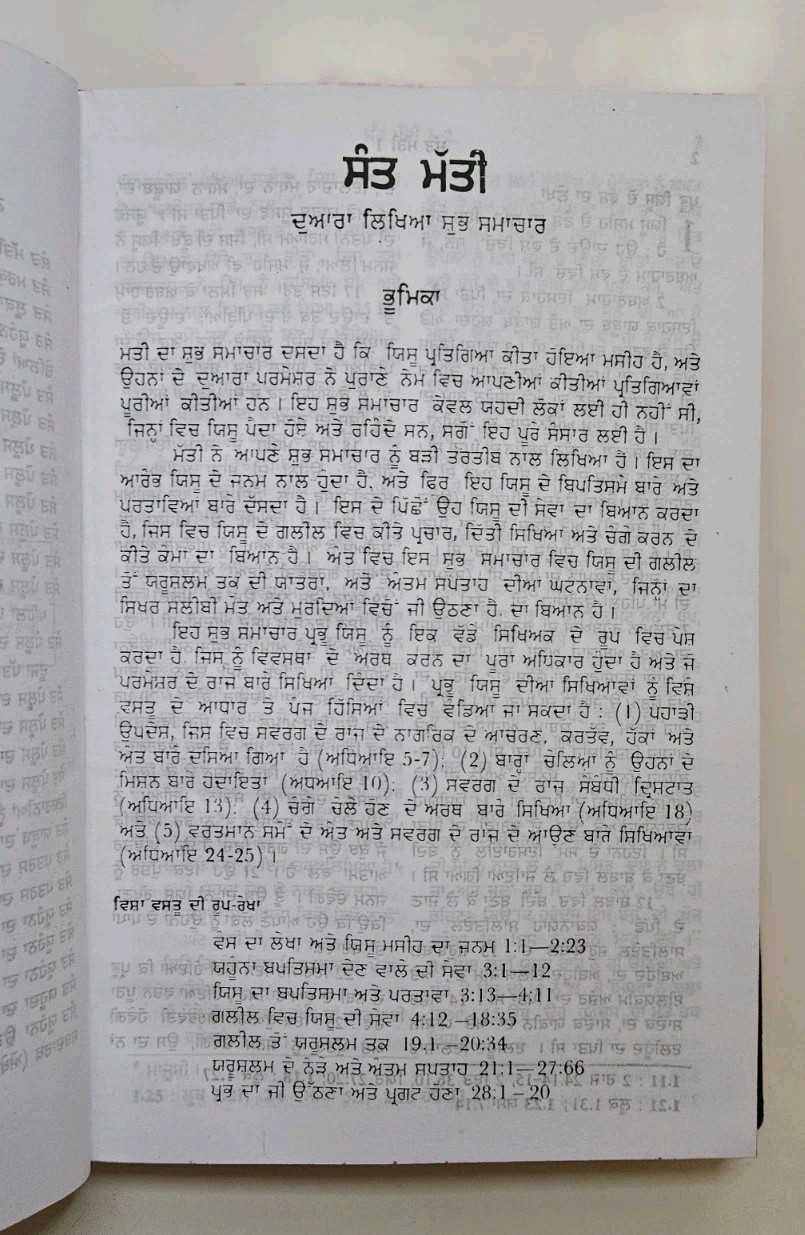 ਸੰਤ ਮੱਤੀ
ਦੁਆਰਾ ਲਿਖਿਆ ਸ਼ੁਭ ਸਮਾਚਾਰ
ਭੂਮਿਕਾ
ਮਤੀ ਦਾ ਸ਼ੁਭ ਸਮਾਚਾਰ ਦਸਦਾ ਹੈ ਕਿ ਯਿਸੂ ਪ੍ਰਤਿਗਿਆ ਕੀਤਾ ਹੋਇਆ ਮਸੀਹ ਹੈ, ਅਤੇ
ਉਹਨਾਂ ਦੇ ਦੁਆਰਾ ਪਰਮੇਸ਼ਰ ਨੇ ਪੁਰਾਣੇ ਨੇਮ ਵਿਚ ਆਪਣੀਆਂ ਕੀਤੀਆਂ ਪ੍ਰਤਿਗਿਆਵਾਂ
ਪੂਰੀਆਂ ਕੀਤੀਆਂ ਹਨ। ਇਹ ਸ਼ੁਭ ਸਮਾਚਾਰ ਕੇਵਲ ਯਹੂਦੀ ਲੋਕਾਂ ਲਈ ਹੀ ਨਹੀਂ ਸੀ,
ਜਿਨ੍ਹਾਂ ਵਿਚ ਯਿਸੂ ਪੈਦਾ ਹੋਏ ਅਤੇ ਰਹਿੰਦੇ ਸਨ, ਸਗੋਂ ਇਹ ਪੂਰੇ ਸੰਸਾਰ ਲਈ ਹੈ।
ਮੱਤੀ ਨੇ ਆਪਣੇ ਸ਼ੁਭ ਸਮਾਚਾਰ ਨੂੰ ਬੜੀ ਤਰਤੀਬ ਨਾਲ ਲਿਖਿਆ ਹੈ। ਇਸ ਦਾ
ਆਰੰਭ ਯਿਸੂ ਦੇ ਜਨਮ ਨਾਲ ਹੁੰਦਾ ਹੈ, ਅਤੇ ਫਿਰ ਇਹ ਯਿਸੂ ਦੇ ਬਿਪਤਿਸਮੇ ਬਾਰੇ ਅਤੇ
ਪਰਤਾਵਿਆਂ ਬਾਰੇ ਦੱਸਦਾ ਹੈ। ਇਸ ਦੇ ਪਿੱਛੋਂ ਉਹ ਯਿਸੂ ਦੀ ਸੇਵਾ ਦਾ ਬਿਆਨ ਕਰਦਾ
ਹੈ, ਜਿਸ ਵਿਚ ਯਿਸੂ ਦੇ ਗਲੀਲ ਵਿਚ ਕੀਤੇ ਪ੍ਰਚਾਰ, ਦਿੱਤੀ ਸਿਖਿਆ ਅਤੇ ਚੰਗੇ ਕਰਨ ਦੇ
ਕੀਤੇ ਕੰਮਾਂ ਦਾ ਬਿਆਨ ਹੈ। ਅੰਤ ਵਿਚ ਇਸ ਸ਼ੁਭ ਸਮਾਚਾਰ ਵਿਚ ਯਿਸੂ ਦੀ ਗਲੀਲ
ਤੋਂ ਯਰੂਸ਼ਲਮ ਤਕ ਦੀ ਯਾਤਰਾ, ਅਤੇ ਅੰਤਮ ਸਪਤਾਹ ਦੀਆਂ ਘਟਨਾਵਾਂ, ਜਿਨ੍ਹਾਂ ਦਾ
ਸਿਖਰ ਸਲੀਬੀ ਮੌਤ ਅਤੇ ਮੁਰਦਿਆਂ ਵਿਚੋਂ ਜੀ ਉਠਣਾ ਹੈ, ਦਾ ਬਿਆਨ ਹੈ।
ਇਹ ਸ਼ੁਭ ਸਮਾਚਾਰ ਪ੍ਰਭੂ ਯਿਸੂ ਨੂੰ ਇਕ ਵੱਡੇ ਸਿਖਿਅਕ ਦੇ ਰੂਪ ਵਿਚ ਪੇਸ਼
ਕਰਦਾ ਹੈ, ਜਿਸ ਨੂੰ ਵਿਵਸਥਾ ਦੇ ਅਰਥ ਕਰਨ ਦਾ ਪੂਰਾ ਅਧਿਕਾਰ ਹੁੰਦਾ ਹੈ ਅਤੇ ਜੋ
ਪਰਮੇਸ਼ਰ ਦੇ ਰਾਜ ਬਾਰੇ ਸਿਖਿਆ ਦਿੰਦਾ ਹੈ। ਪ੍ਰਭੂ ਯਿਸੂ ਦੀਆਂ ਸਿਖਿਆਵਾਂ ਨੂੰ ਵਿਸ਼ੇ
ਵਸਤੂ ਦੇ ਆਧਾਰ ਤੇ ਪੰਜ ਹਿੱਸਿਆਂ ਵਿਚ ਵੰਡਿਆ ਜਾ ਸਕਦਾ ਹੈ : (1) ਪਹਾੜੀ
ਉਪਦੇਸ਼, ਜਿਸ ਵਿਚ ਸਵਰਗ ਦੇ ਰਾਜ ਦੇ ਨਾਗਰਿਕ ਦੇ ਆਚਰਣ, ਕਰਤੱਵ, ਹੱਕਾਂ ਅਤੇ
ਅੰਤ ਬਾਰੇ ਦਸਿਆ ਗਿਆ ਹੈ (ਅਧਿਆਇ 5-7); (2) ਬਾਰ੍ਹਾਂ ਚੇਲਿਆਂ ਨੂੰ ਉਹਨਾਂ ਦੇ
ਮਿਸ਼ਨ ਬਾਰੇ ਹਦਾਇਤਾਂ (ਅਧਆਇ 10); (3) ਸਵਰਗ ਦੇ ਰਾਜ ਸੰਬੰਧੀ ਦ੍ਰਿਸ਼ਟਾਂਤ
(ਅਧਿਆਇ 13); (4) ਚੰਗੇ ਚੇਲੇ ਹੋਣ ਦੇ ਅਰਥ ਬਾਰੇ ਸਿਖਿਆ (ਅਧਿਆਇ 18)
ਅਤੇ (5) ਵਰਤਮਾਨ ਸਮੇਂ ਦੇ ਅੰਤ ਅਤੇ ਸਵਰਗ ਦੇ ਰਾਜ ਦੇ ਆਉਣ ਬਾਰੇ ਸਿਖਿਆਵਾਂ
(ਅਧਿਆਇ 24-25)।
ਵਿਸ਼ਾ ਵਸਤੂ ਦੀ ਰੂਪ-ਰੇਖਾ
ਵੰਸ ਦਾ ਲੇਖਾ ਅਤੇ ਯਿਸੂ ਮਸੀਹ ਦਾ ਜਨਮ 1:1—2:23
ਯਹੂੰਨਾ ਬਪਤਿਸਮਾ ਦੇਣ ਵਾਲੇ ਦੀ ਸੇਵਾ 3:1—12
ਯਿਸੂ ਦਾ ਬਪਤਿਸਮਾ ਅਤੇ ਪਰਤਾਵਾ 3:13—4:11
ਗਲੀਲ ਵਿਚ ਯਿਸੂ ਦੀ ਸੇਵਾ 4:12—18:35
ਗਲੀਲ ਤੋਂ ਯਰੂਸ਼ਲਮ ਤਕ 19:1—20:34
ਯਰੂਸ਼ਲਮ ਦੇ ਨੇੜੇ ਅਤੇ ਅੰਤਮ ਸਪਤਾਹ 21:1—27:66
ਪ੍ਰਭੂ ਦਾ ਜੀ ਉੱਠਣਾ ਅਤੇ ਪ੍ਰਗਟ ਹੋਣਾ 28:1—20